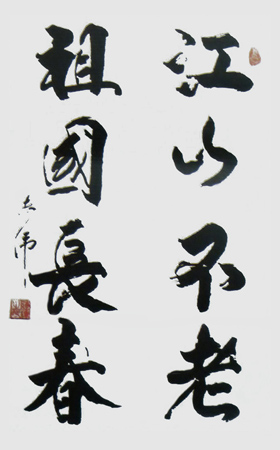 江山不老
祖國長春